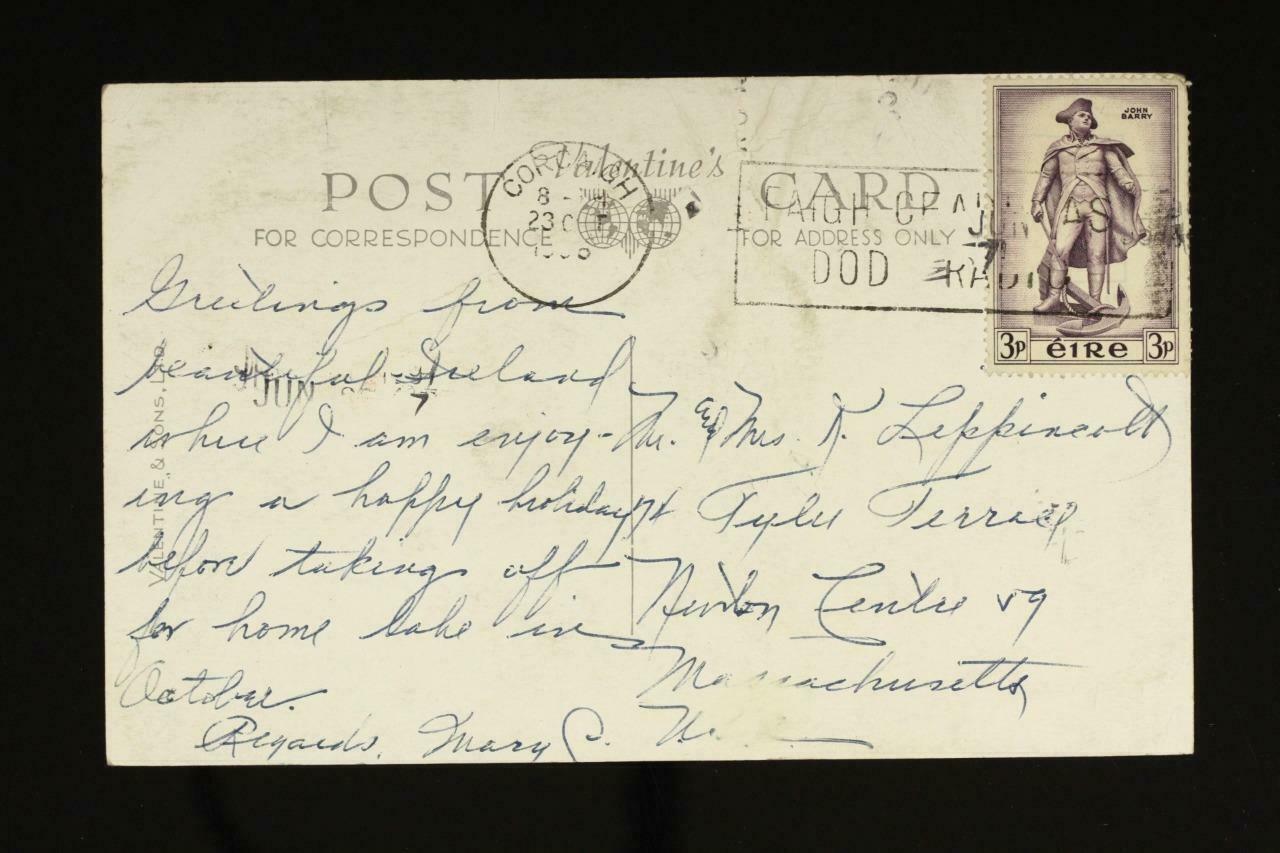 Valentine's
POST CARD
FOR CORRESPONDENCE
FOR ADDRESS ONLY
CORCAIGH
8 -
23
FAIGH
DOD RADIO
JUN
JOHN
BARRY
3p éIRe 3p
VALENTINE & SONS, LTD.
JUN
Greetings from
beautiful Ireland
where I am enjoy-
ing a happy holiday
before taking off
for home late in
October.
Regards, Mary C.
Mr. & Mrs. K. Leppincott
Tyler Terrace
Newton Centre 59
Massachusetts